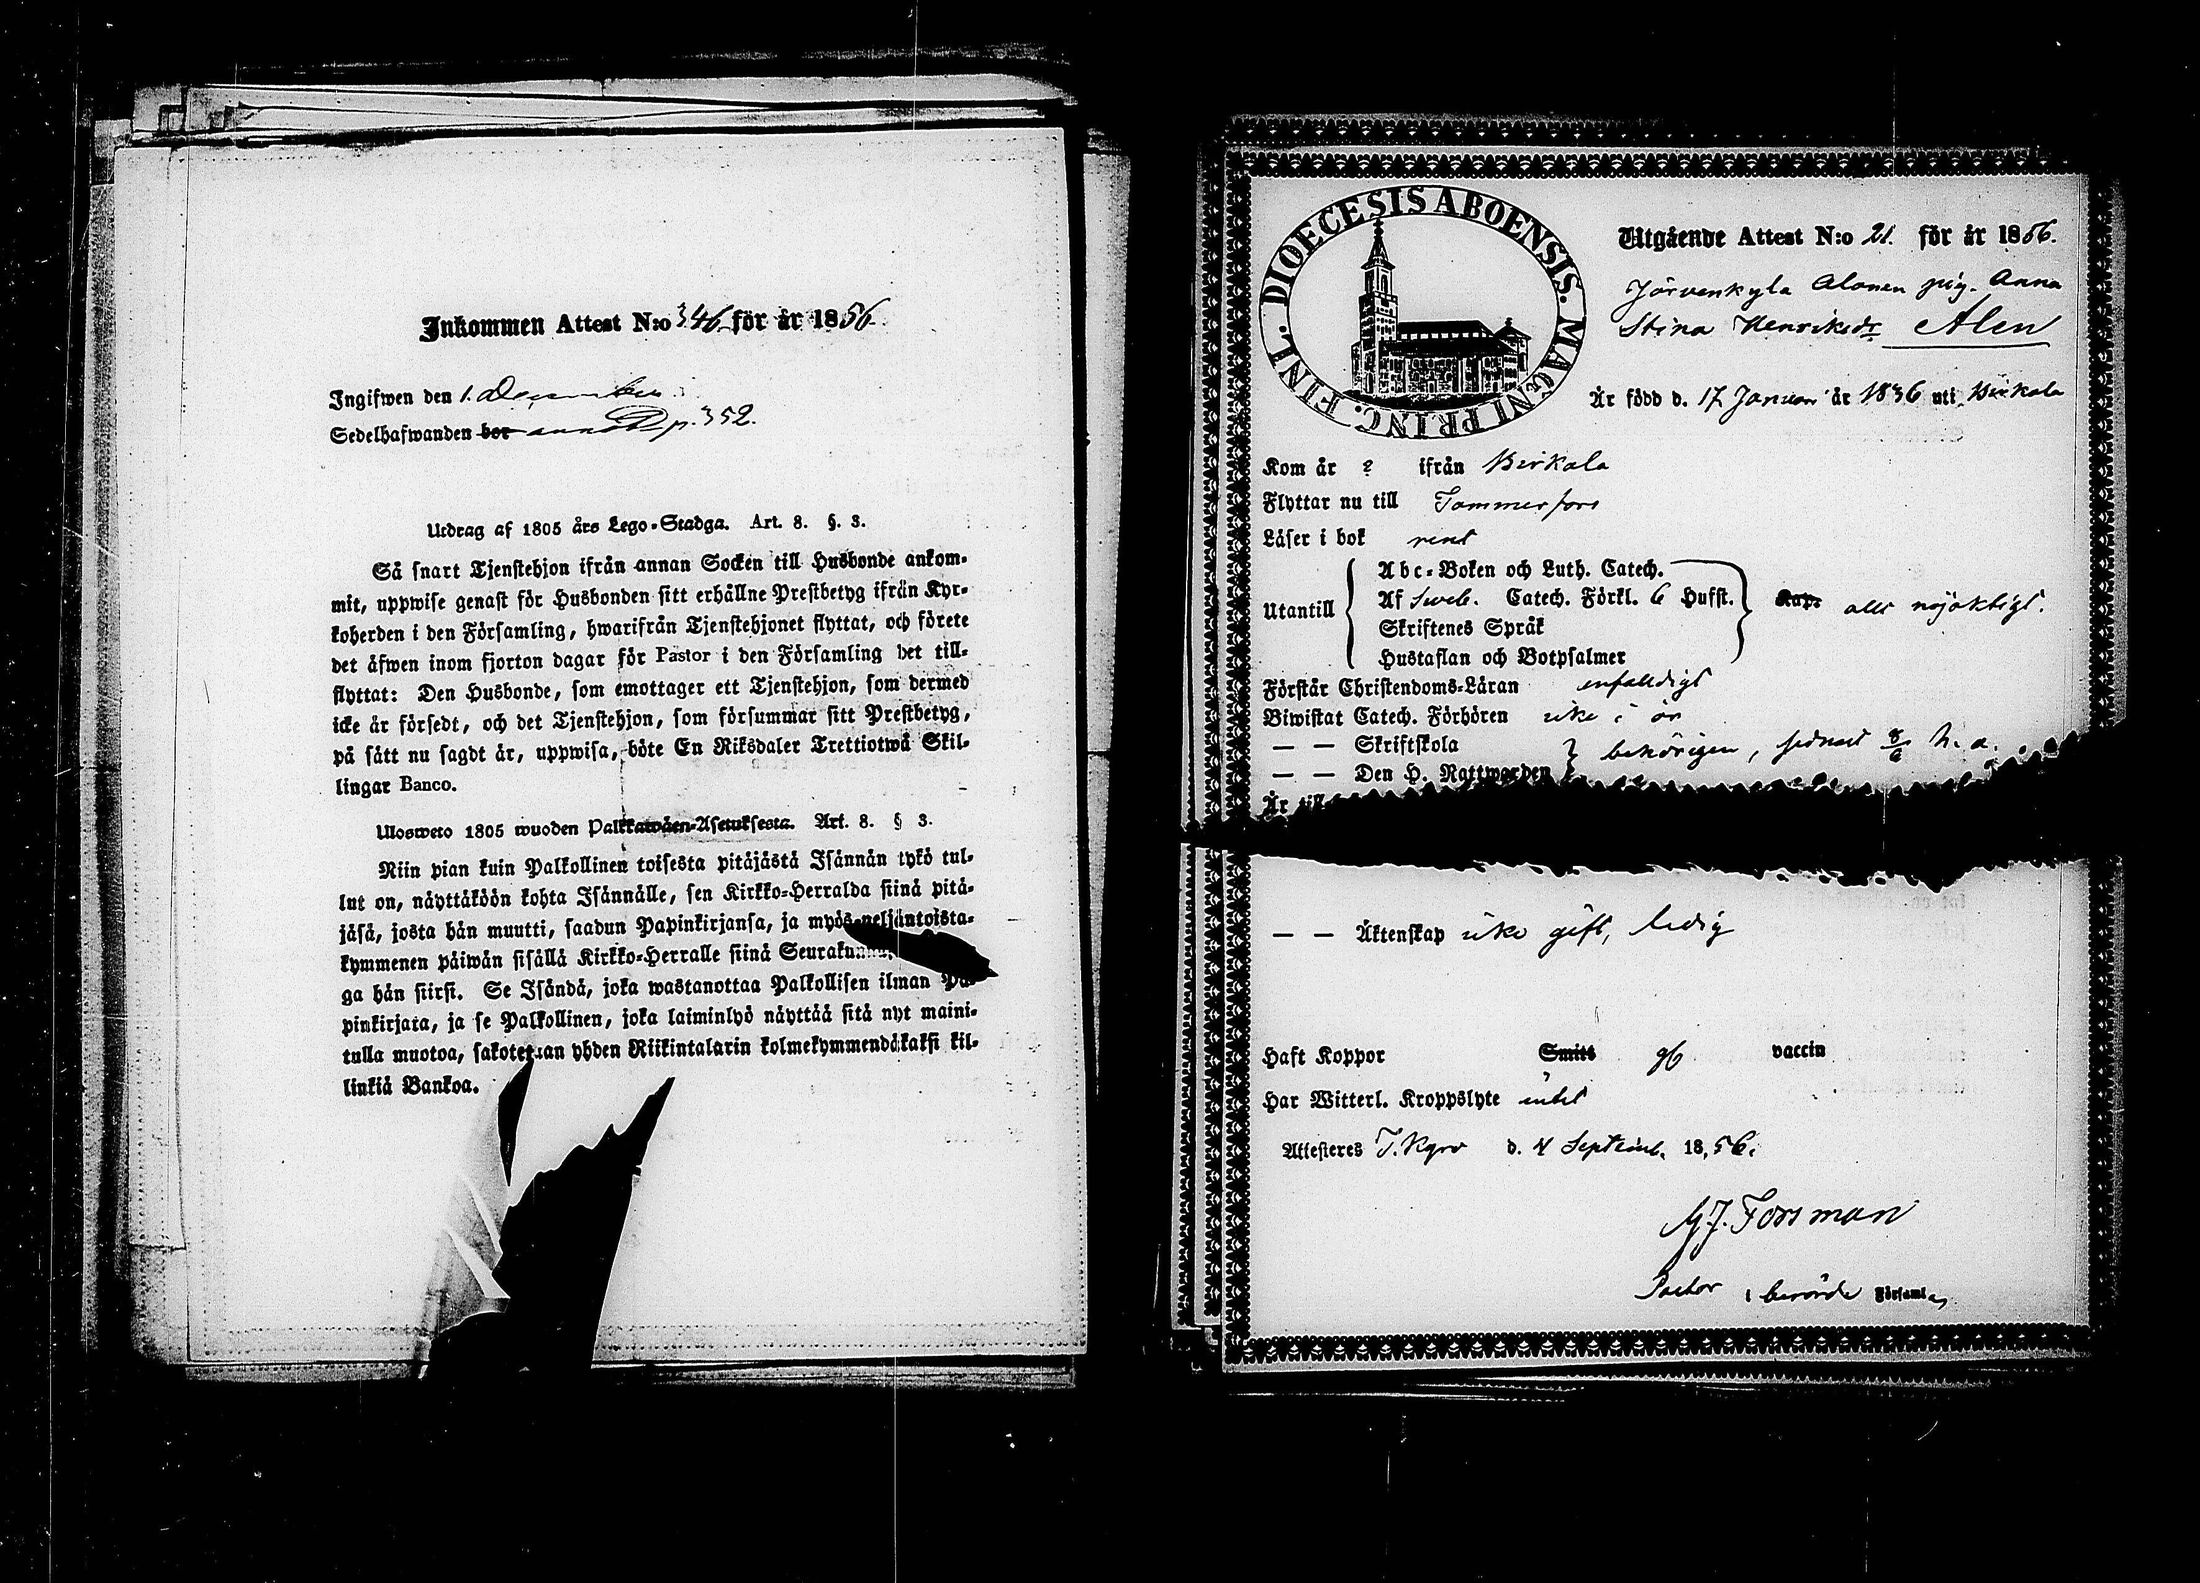 Inkommen Attest N:o 346 för år 1856.
Ingifwen den 1. December
Sedelhafwanden bor annot. p. 352.
Utdrag af 1805 års Lego-Stadga. Art. 8. §. 3.
Så snart Tjenstehjon ifrån annan Socken till Husbonde ankom-
mit, uppwise genast för Husbonden sitt erhållne Prestbetyg ifrån Kyr-
koherden i den Församling, hwarifrån Tjenstehjonet flyttat, och förete
det äfwen inom fjorton dagar för Pastor i den Församling det till-
flyttat: Den Husbonde, som emottager ett Tjenstehjon, som dermed
icke är försedt, och det Tjenstehjon, som försummar sitt Prestbetyg,
på sätt nu sagdt är, uppwisa, böte En Riksdaler Trettiotwå Skil-
lingar Banco.
Ulosweto 1805 wuoden Palkkawäen-Asetuksesta. Art. 8. § 3.
Niin pian kuin Palkollinen toisesta pitäjästä Isännän tykö tul-
lut on, näyttäköön kohta Isännälle, sen Kirkko-Herralda siinä pitä-
jäsä, josta hän muutti, saadun Papinkirjansa, ja myös neljäntoista-
kymmenen päiwän sisällä Kirkko-Herralle siinä Seurakun
ga hän siirsi. Se Isändä, joka wastanottaa Palkollisen ilman Pa-
pinkirjata, ja se Palkollinen, joka laiminlyö näyttää sitä nyt maini-
tulla muotoa, sakotetaan yhden Riikintalarin kolmekymmendäkaksi kil-
linkiä Bankoa.
DIOECESIS ABOENSIS. MAGNI PRINC. FINL.
Utgående Attest N:o 21. för år 1856.
Järvenkylä Alonen pig. Anna
Stina Henriksdr Alen
Är född d. 17 Januar år 1836 uti Birkala
Kom år ? ifrån Birkala
Flyttar nu till Tammerfors
Läser i bok rent
Utantill
Abc-Boken och Luth. Catech.
Af Sveb. Catech. Förkl. 6 Hufst.
Skriftenes Språk
Hustaflan och Botpsalmer
Kap. allt nöjaktigt.
Förstår Christendoms-Läran enfaldigt
Biwistat Catech. Förhören icke i år
— — Skriftskola
— — Den H. Nattwarden
behörigen, sednast 8/6 h. a.
Är till
— — Äktenskap icke gift, ledig
Haft Koppor Smitt gb vaccin
Har Witterl. Kroppslyte intet
Attesteras T. Kyro d. 4 Septemb. 1856.
Forsman
Pastor i berörde Församl